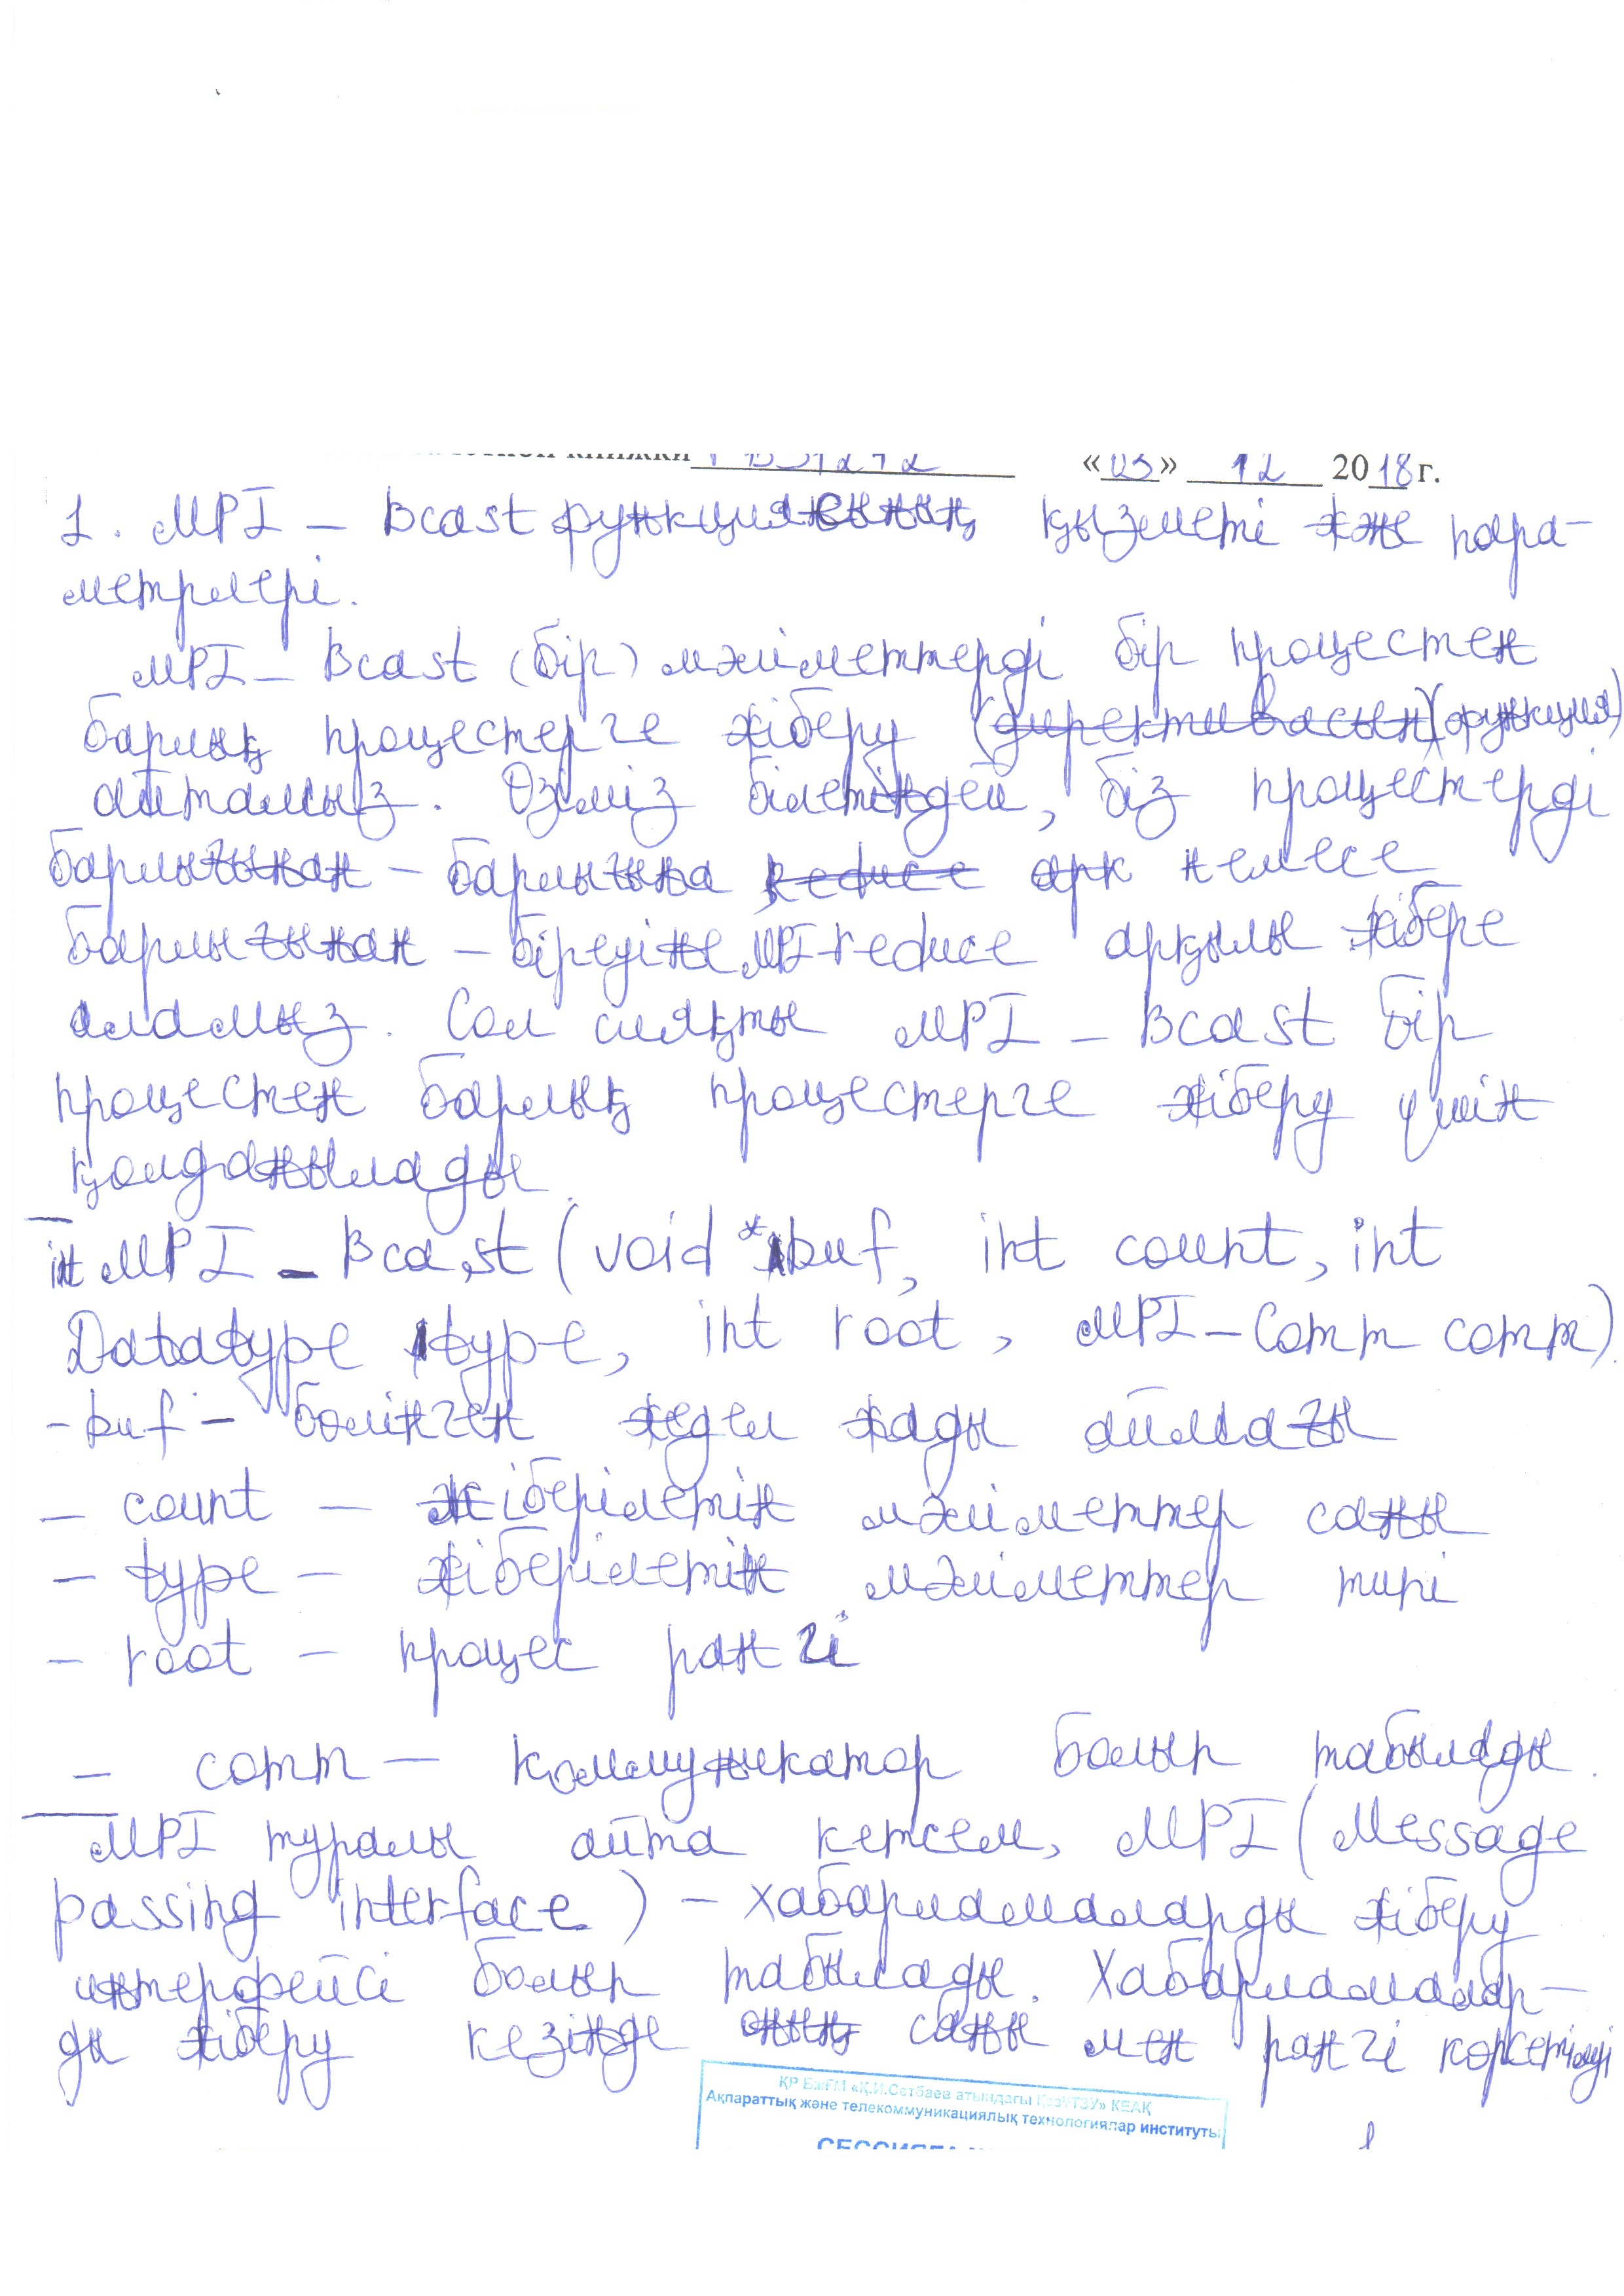 КНИЖКИ «03» 12 2018 г.
1. MPI - Bcast функциясының қызметі және пара-
метрлері.
MPI - Bcast (бір) мәліметтерді бір процестен
барлық процестерге жіберу (директивасын) (функция)
айтамыз. Өзіміз білетіндей, біз процестерді
барлығынан - барлығына reduce арк немесе
барлығынан - біреуіне MPI-reduce арқылы жібере
аламыз. Сол сияқты MPI - Bcast бір
процестен барлық процестерге жіберу үшін
қолданылады.
int MPI - Bcast (void *buf, int count, int
Datatype type, int root, MPI - Comm comm).
- buf - бөлінген жедел жады аймағы
- count - жіберілетін мәліметтер саны
- type - жіберілетін мәліметтер типі
- root - процес рангі
- comm - коммуникатор болып табылады.
MPI туралы айта кетсем, MPI (Message
passing interface) - хабарламаларды жіберу
интерфейсі болып табылады. Хабарламалар-
ды жіберу кезінде оның саны мен рангі көрсетіледі
ҚР БжҒМ «Қ.И.Сәтбаев атындағы ҚазҰТЗУ» КЕАҚ
Ақпараттық және телекоммуникациялық технологиялар институты